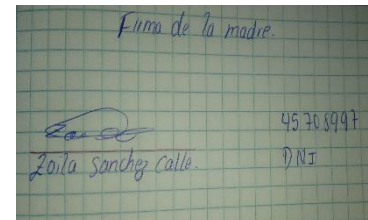 Firma de la madre.
45708997
Zoila Sanchez Calle.
DNI